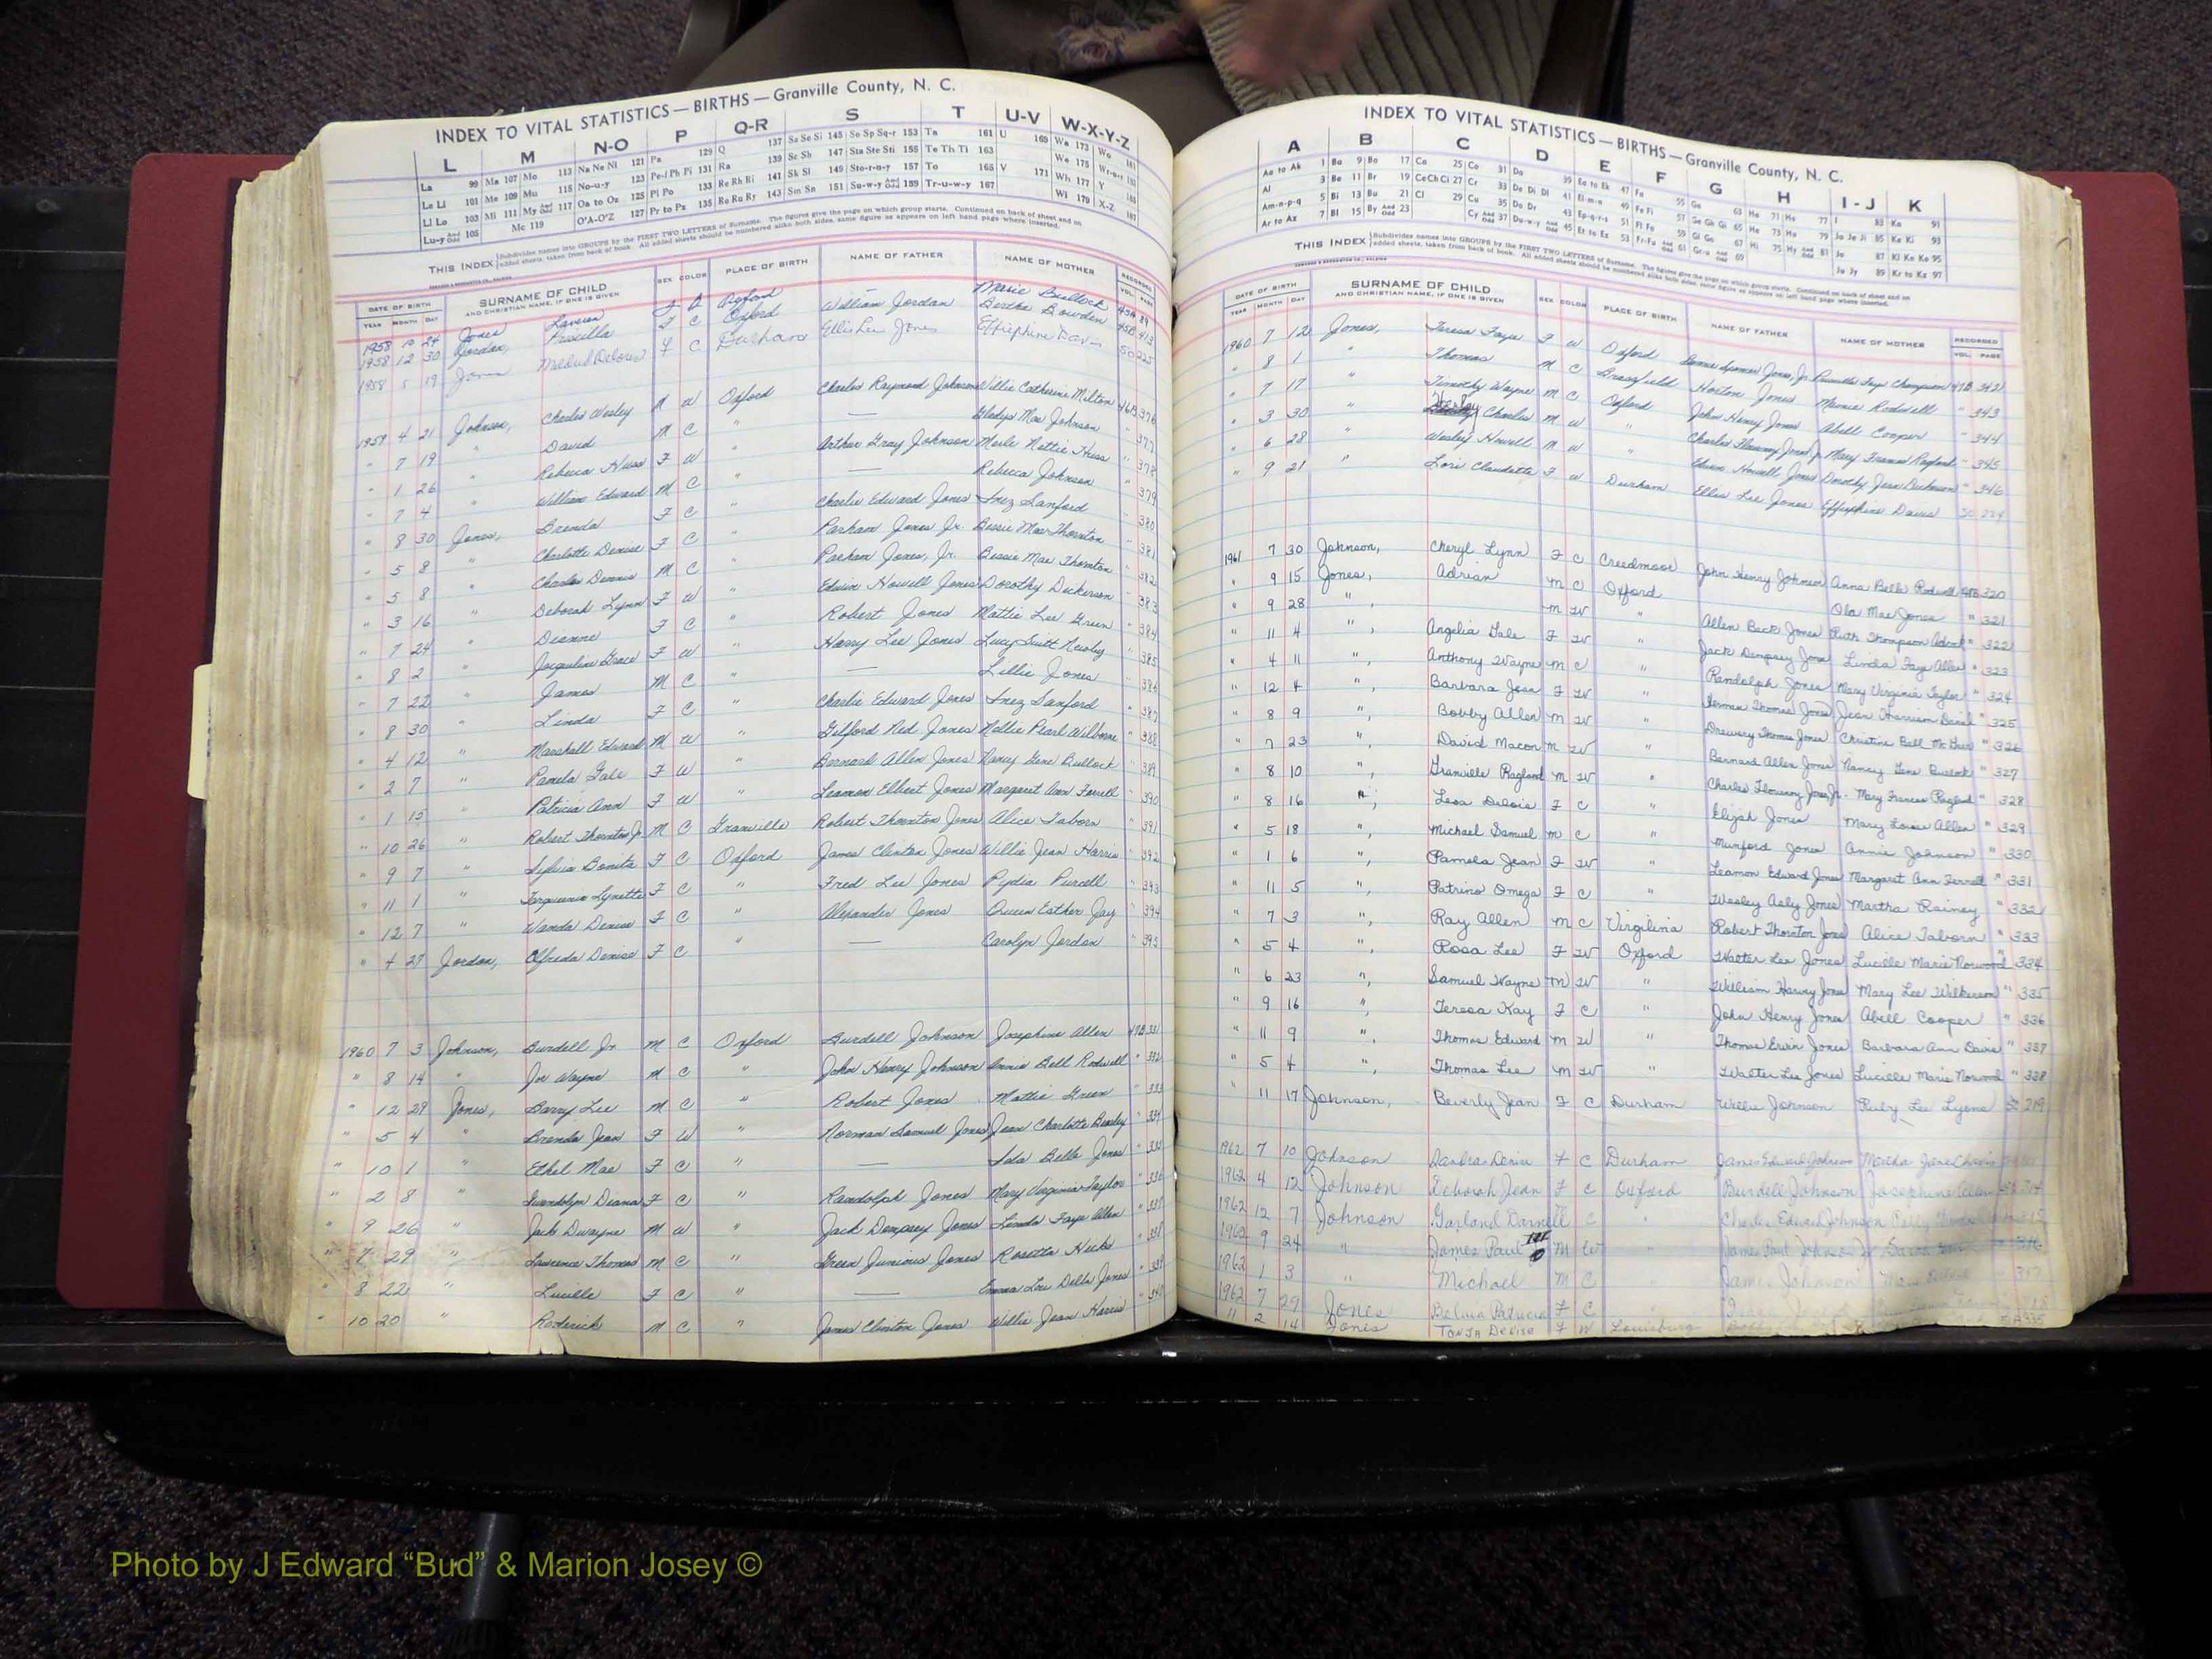 INDEX TO VITAL STATISTICS — BIRTHS — Granville County, N. C.
L M N-O P Q-R S T U-V W-X-Y-Z
La 99 Ma 107 Mo 113 Na Ne Ni 121 Pa 129 Q 137 Sa Se Si 145 So Sp Sq-r 153 Ta 161 U 169 Wa 173 Wo 181
Le Li 101 Me 109 Mu 115 No-u-y 123 Pe-i Ph Pi 131 Ra 139 Sc Sh 147 Sta Ste Sti 155 Te Th Ti 163 We 175
Ll Lo 103 Mi 111 My And Odd 117 Oa to Oz 125 Pl Po 133 Re Rh Ri 141 Sk Sl 149 Sto-r-u-y 157 To 165 V 171 Wh 177 Y
Lu-y And Odd 105 Mc 119 O'A-O'Z 127 Pr to Pz 135 Ro Ru Ry 143 Sm Sn 151 Su-w-y And Odd 159 Tr-u-w-y 167 Wi 179 X-Z 187
THIS INDEX Subdivides names into GROUPS by the FIRST TWO LETTERS of Surname. The figures give the page on which group starts. Continued on back of sheet and on
added sheets, taken from back of book. All added sheets should be numbered alike both sides, same figure as appears on left hand page where inserted.
DATE OF BIRTH SURNAME OF CHILD SEX COLOR PLACE OF BIRTH NAME OF FATHER NAME OF MOTHER RECORDED
YEAR MONTH DAY AND CHRISTIAN NAME, IF ONE IS GIVEN VOL. PAGE
1958 10 24 Jones Oxford — Marie Bullock
1958 12 30 Jordan, Priscilla F C Oxford William Jordan Bertha Bowden 45B 413
1958 5 19 Jones Mildred Delores F C Durham Ellis Lee Jones Effiephine Davis 50 225
1959 4 21 Johnson, Charles Wesley M W Oxford Charles Raymond Johnson Willie Catherine Milton 46B 376
" 7 19 " David M C " — Gladys Mae Johnson " 377
" 1 26 " Rebecca Huss F W " Arthur Gray Johnson Merle Nettie Huss " 378
" 7 4 " William Edward M C " — Rebecca Johnson " 379
" 8 30 Jones, Brenda F C " Charlie Edward Jones Inez Sanford " 380
" 5 8 " Charlotte Denise F C " Parham Jones Jr. Bessie Mae Thornton " 381
" 5 8 " Charles Dennis M C " Parham Jones, Jr. Bessie Mae Thornton " 382
" 3 16 " Deborah Lynn F W " Edwin Howell Jones Dorothy Dickerson " 383
" 7 24 " Dianne F C " Robert Jones Mattie Lee Green " 384
" 8 2 " Jacqueline Grace F W " Harry Lee Jones Lucy Switt Newby " 385
" 7 22 " James M C " — Lillie Jones " 386
" 8 30 " Linda F C " Charlie Edward Jones Inez Sanford " 387
" 4 12 " Marshall Edward M W " Gilford Red Jones Nellie Pearl Wilborne " 388
" 2 7 " Pamela Gale F W " Bernard Allen Jones Nancy Gene Bullock " 389
" 1 15 " Patricia Ann F W " Leamon Elbert Jones Margaret Ann Ferrell " 390
" 10 26 " Robert Thornton Jr M C Granville Robert Thornton Jones Alice Taborn " 391
" 9 7 " Sylvia Bonita F C Oxford James Clinton Jones Willie Jean Harris " 392
" 11 1 " Lynette F C " Fred Lee Jones Pydia Purcell " 393
" 12 7 " Wanda Denise F C " Alexander Jones Queen Esther Jay " 394
" 4 27 Jordan, Alfreda Denise F C " — Carolyn Jordan " 395
1960 7 3 Johnson, Burdell Jr M C Oxford Burdell Johnson Josephine Allen 47B 331
" 8 14 " Joe Wayne M C " John Henry Johnson Annie Bell Rodwell " 332
" 12 29 Jones, Barry Lee M C " Robert Jones Mattie Green " 333
" 5 4 " Brenda Jean F W " Norman Samuel Jones Jean Charlotte Beasley " 334
" 10 1 " Ethel Mae F C " — Ida Belle Jones " 335
" 2 8 " Gwendolyn Deana F C " Randolph Jones Mary Virginia Taylor " 336
" 9 26 " Jack Dwayne M W " Jack Dempsey Jones Linda Faye Allen " 337
" 7 29 " Lawrence Thomas M C " Green Junious Jones Rosetta Hicks " 338
" 8 22 " Lucille F C " — Emma Lou Della Jones " 339
" 10 20 " Roderick M C " James Clinton Jones Willie Jean Harris " 340
INDEX TO VITAL STATISTICS — BIRTHS — Granville County, N. C.
A B C D E F G H I-J K
Aa to Ak 1 Ba 9 Bo 17 Ca 25 Co 31 Da 39 Ea to Ek 47 Fa 55 Ga 63 Ha 71 Ho 77 I 83 Ka 91
Al 3 Be 11 Br 19 Ce Ch Ci 27 Cr 33 De Di Dl 41 El-m-n 49 Fe Fi 57 Ge Gh Gi 65 He 73 Hu 79 Ja Je Ji 85 Ke Ki 93
Am-n-p-q 5 Bi 13 Bu 21 Cl 29 Cu 35 Do Dr 43 Ep-q-r-s 51 Fl Fo 59 Gl Go 67 Hi 75 Hy And Odd 81 Jo 87 Kl Kn Ko 95
Ar to Az 7 Bl 15 By And Odd 23 Cy And Odd 37 Du-w-y And Odd 45 Et to Ez 53 Fr-Fu And Odd 61 Gr-u And Odd 69 Ju Jy 89 Kr to Kz 97
THIS INDEX Subdivides names into GROUPS by the FIRST TWO LETTERS of Surname. The figures give the page on which group starts. Continued on back of sheet and on
added sheets, taken from back of book. All added sheets should be numbered alike both sides, same figure as appears on left hand page where inserted.
DATE OF BIRTH SURNAME OF CHILD SEX COLOR PLACE OF BIRTH NAME OF FATHER NAME OF MOTHER RECORDED
YEAR MONTH DAY AND CHRISTIAN NAME, IF ONE IS GIVEN VOL. PAGE
1960 7 12 Jones, Teresa Faye F W Oxford Spencer Jones, Jr. Priscilla Faye Champion 47B 342
" 8 1 " Thomas M C Brassfield Horton Jones Mamie Rodwell " 343
" 7 17 " Timothy Wayne M C Oxford John Henry Jones Abell Cooper " 344
" 3 30 " Wesley Charles M W " Charles Flournoy Jones, Jr. Mary Frances Ragland " 345
" 6 28 " Wesley Howell M W " Edwin Howell Jones Dorothy Jean Dickerson " 346
" 9 21 " Lori Claudette F W Durham Ellis Lee Jones Effiephine Davis 50 224
1961 7 30 Johnson, Cheryl Lynn F C Creedmoor John Henry Johnson Anna Belle Rodwell 48B 320
" 9 15 Jones, Adrian M C Oxford Ola Mae Jones " 321
" 9 28 ", M W " Allen Beck Jones Ruth Thompson Adcock " 322
" 11 4 ", Angelia Gale F W " Jack Dempsey Jones Linda Faye Allen " 323
" 4 11 ", Anthony Wayne M C " Randolph Jones Mary Virginia Taylor " 324
" 12 4 ", Barbara Jean F W " Herman Thomas Jones Jean Harrison Daniel " 325
" 8 9 ", Bobby Allen M W " Drewery Thomas Jones Christine Ball McGhee " 326
" 7 23 ", David Macon M W " Bernard Allen Jones Nancy Gene Bullock " 327
" 8 10 ", Granville Ragland M W " Charles Flournoy Jones Jr. Mary Frances Ragland " 328
" 8 16 ", Lesa Delois F C " Elijah Jones Mary Louise Allen " 329
" 5 18 ", Michael Samuel M C " Munford Jones Annie Johnson " 330
" 1 6 ", Pamela Jean F W " Leamon Edward Jones Margaret Ann Ferrell " 331
" 11 5 ", Patrino Omega F C " Wesley Asly Jones Martha Rainey " 332
" 7 3 ", Ray Allen M C Virgilina Robert Thornton Jones Alice Taborn " 333
" 5 4 ", Rosa Lee F W Oxford Walter Lee Jones Lucille Marie Norwood " 334
" 6 23 ", Samuel Wayne M W " William Harvey Jones Mary Lee Wilkerson " 335
" 9 16 ", Teresa Kay F C " John Henry Jones Abell Cooper " 336
" 11 9 ", Thomas Edward M W " Thomas Ervin Jones Barbara Ann Davis " 337
" 5 4 ", Thomas Lee M W " Walter Lee Jones Lucille Marie Norwood " 338
" 11 17 Johnson, Beverly Jean F C Durham Willie Johnson Ruby Lee Lyons 50 219
1962 7 10 Johnson Sandra Denise F C Durham James Edward Johnson Martha Jane
1962 4 12 Johnson Deborah Jean F C Oxford Burdell Johnson Josephine Allen
1962 12 7 Johnson Garland Darnell C " Charles Edward Johnson
1962 9 24 " James Paul III M W " James Paul Johnson Jr
1962 1 3 " Michael M C " James Johnson
1962 7 29 Jones Belvia Patricia F C "
" 2 14 Jones Tonja Denise F W Louisburg
Photo by J Edward “Bud” & Marion Josey ©